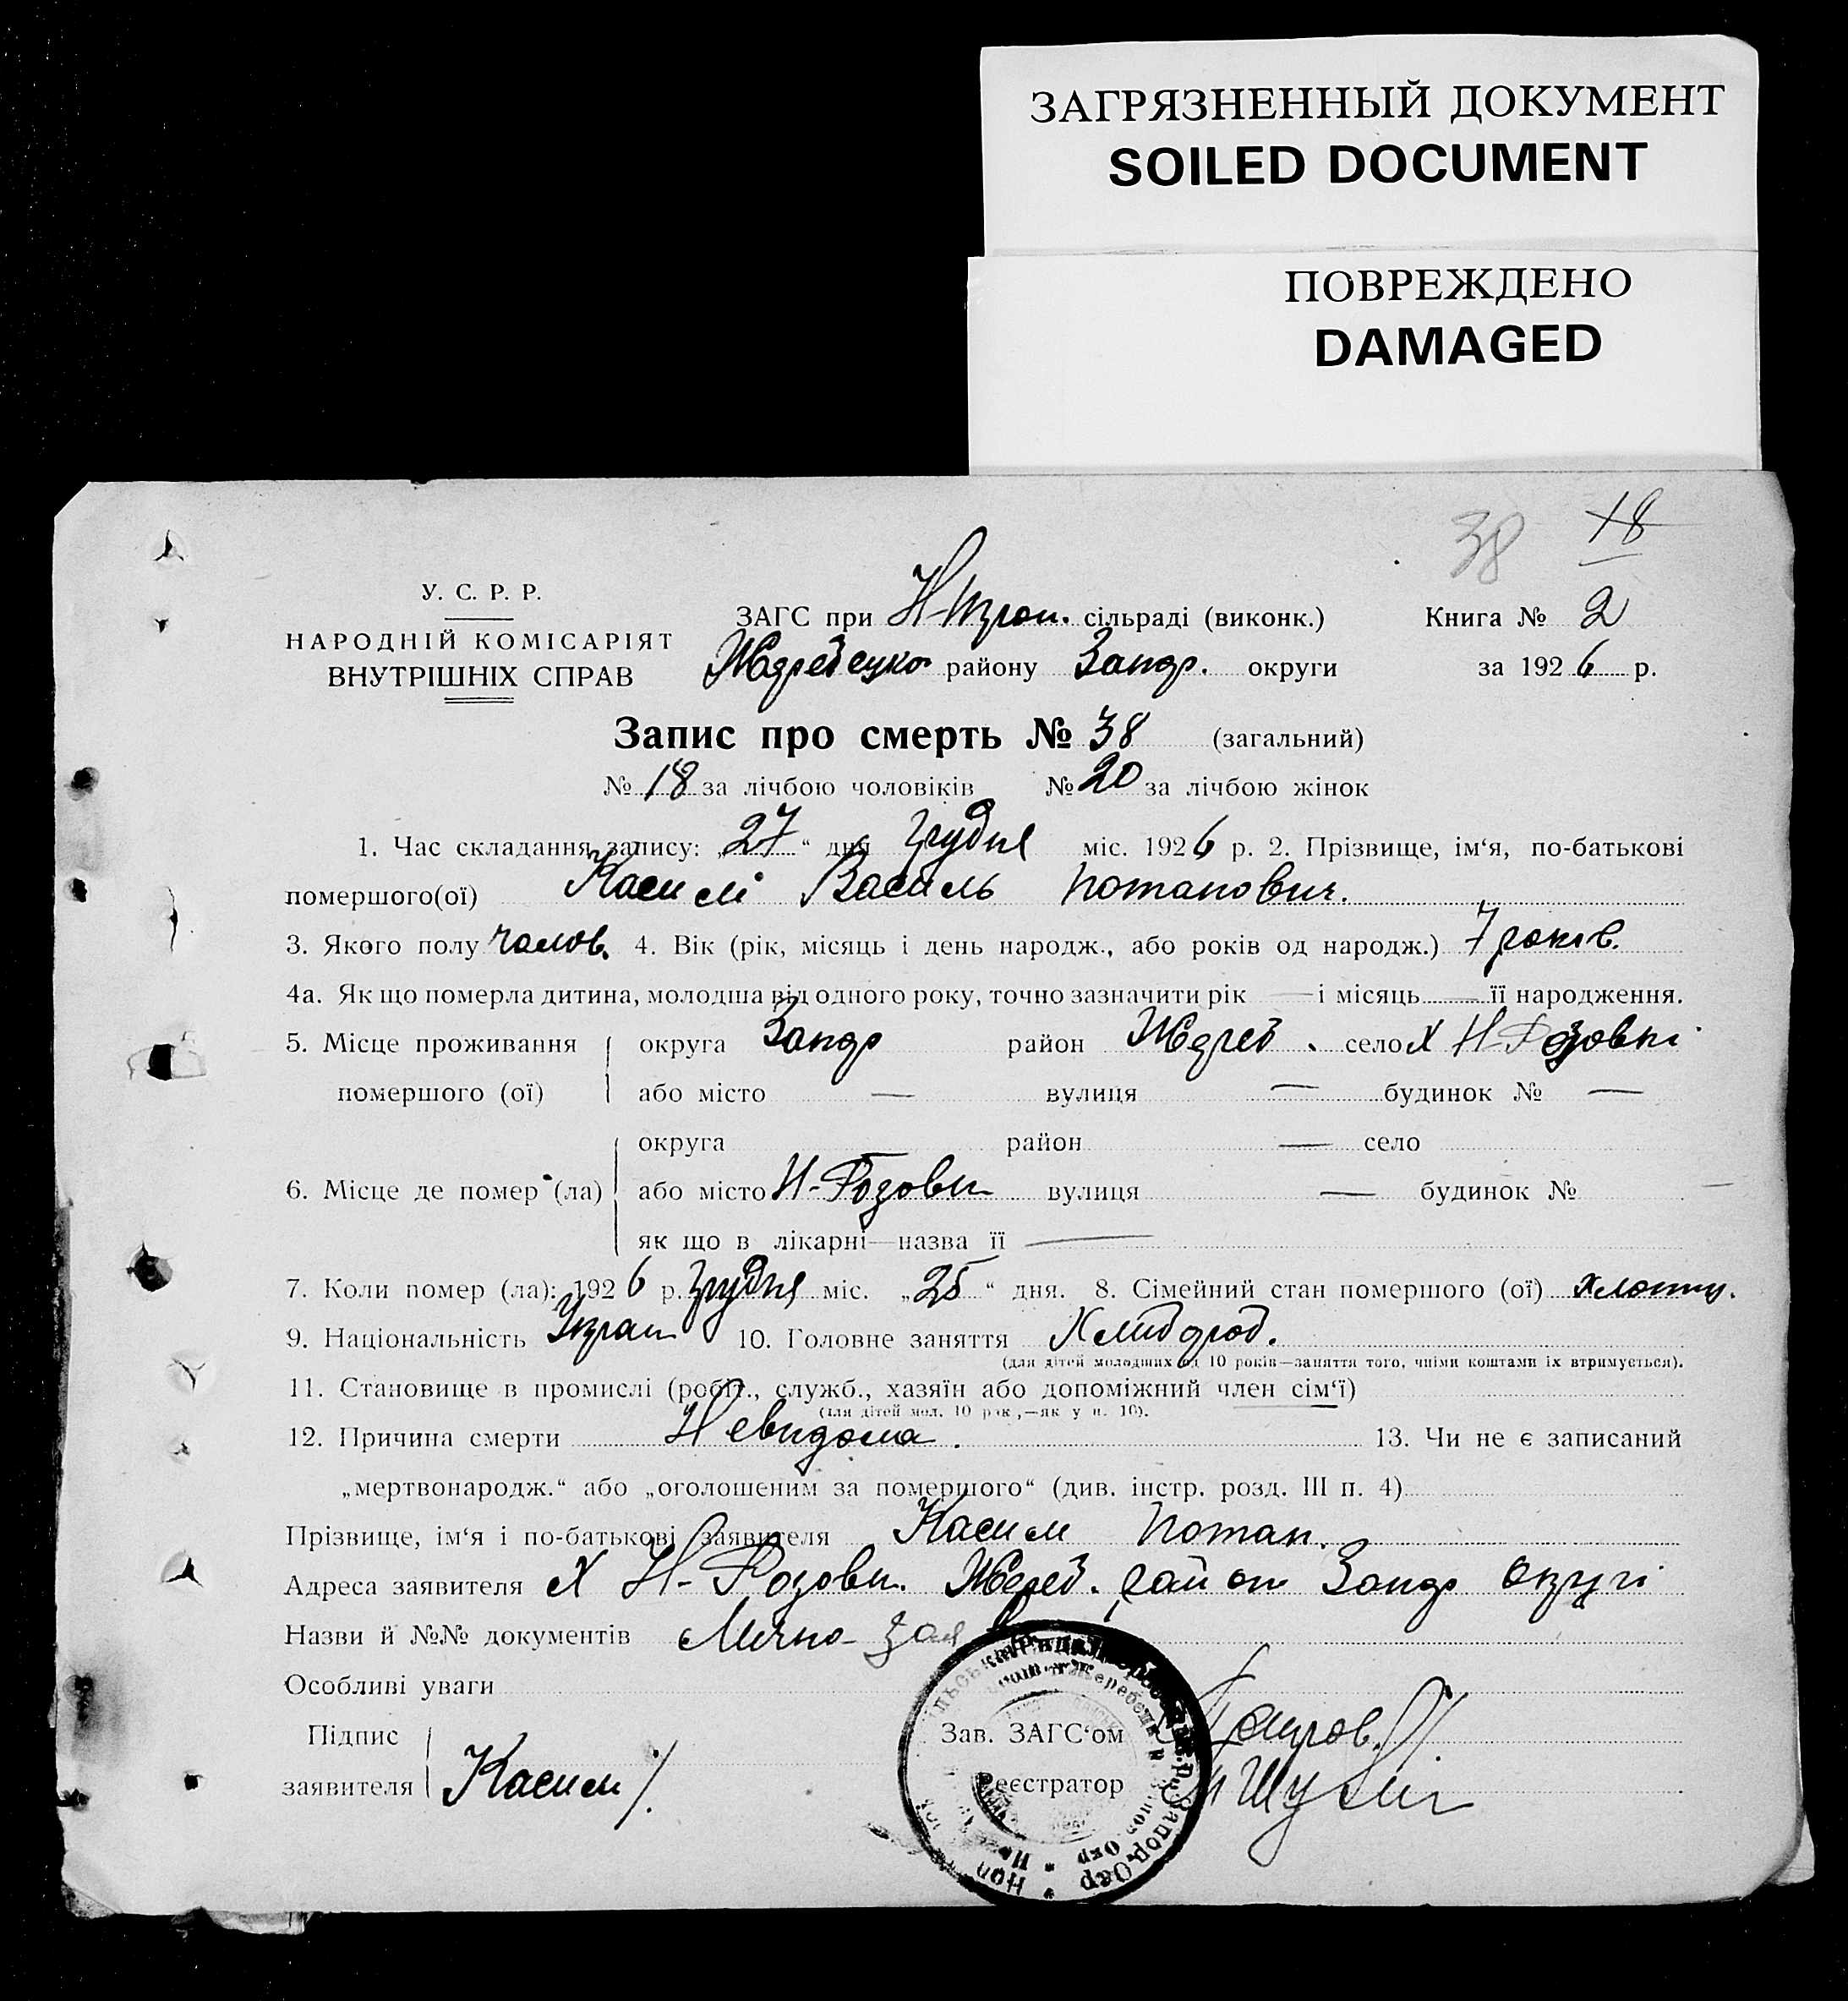 ЗАГРЯЗНЕННЫЙ ДОКУМЕНТ
SOILED DOCUMENT
ПОВРЕЖДЕНО
DAMAGED
38 18
У. С. Р. Р.
НАРОДНІЙ КОМІСАРІЯТ
ВНУТРІШНІХ СПРАВ
ЗАГС при сільраді (виконк.) Книга № 2
району Запор. округи за 1926 р.
Запис про смерть № 38 (загальний)
№ 18 за лічбою чоловіків № 20 за лічбою жінок
1. Час складання запису: „27“ дня Грудня міс. 1926 р. 2. Прізвище, ім‘я, по-батькові
помершого(ої) Василь Потапович.
3. Якого полу чолов. 4. Вік (рік, місяць і день народж., або років од народж.) 7 років.
4а. Як що померла дитина, молодша від одного року, точно зазначити рік — і місяць — її народження.
5. Місце проживання округа Запор район Жереб. село х Н-Розовкі
помершого (ої) або місто — вулиця — будинок № —
округа район — село
6. Місце де помер (ла) або місто Н-Розовки вулиця — будинок №
як що в лікарні—назва її —
7. Коли помер (ла): 1926 р. Грудня міс. „25“ дня. 8. Сімейний стан помершого (ої)
9. Національність Украи 10. Головне заняття Хлибороб.
(для дітей молодших од 10 років—заняття того, чиїми коштами їх втримується).
11. Становище в промислі (робіт., служб., хазяїн або допоміжний член сім‘ї)
(для дітей мол. 10 рок,—як у п. 10).
12. Причина смерти Невидома. 13. Чи не є записаний
„мертвонародж.“ або „оголошеним за помершого“ (див. інстр. розд. III п. 4)
Прізвище, ім‘я і по-батькові заявителя Касим Потап.
Адреса заявителя х Н-Розовк. Жереб. район Запор округі
Назви й №№ документів Лично
Особливі уваги
Підпис Зав. ЗАГС‘ом
заявителя Касим Реєстратор